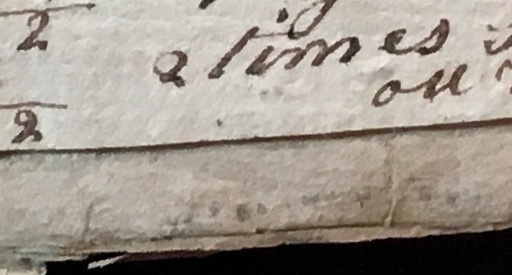 2
2 times
ou
2